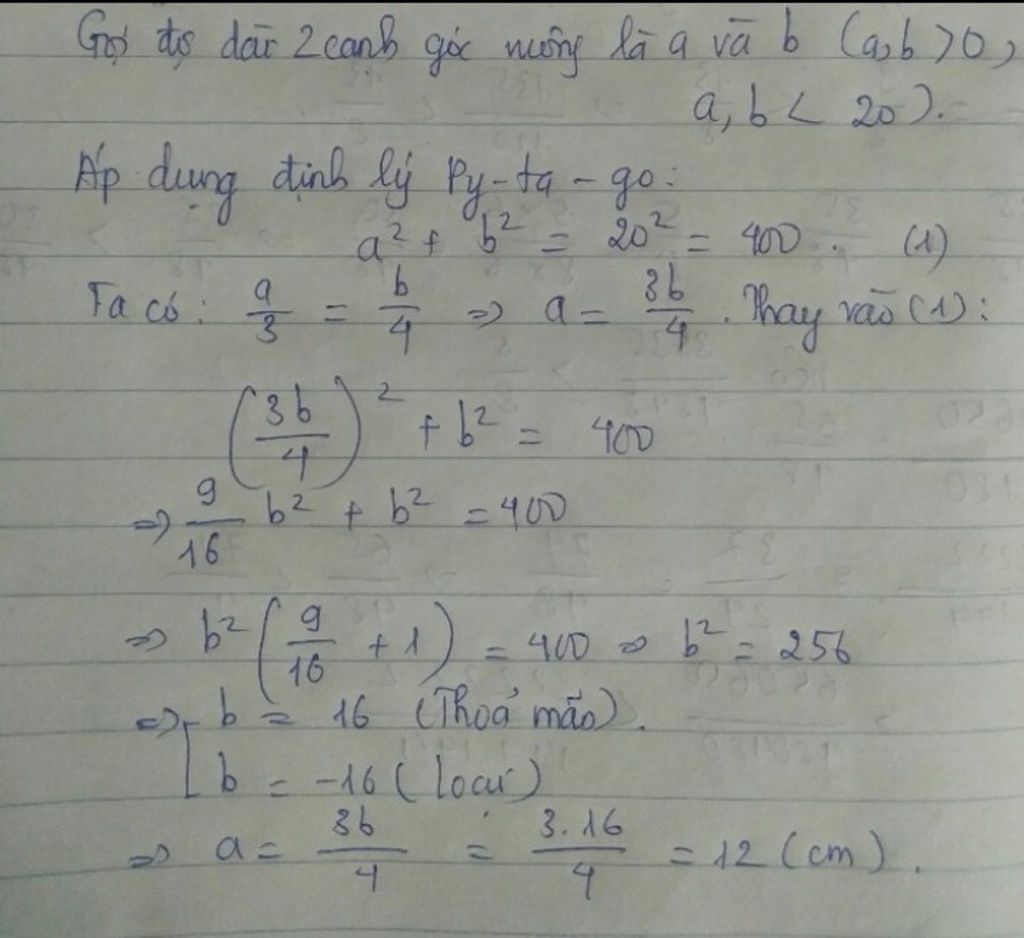 Gọi độ dài 2 cạnh góc vuông là a và b (a,b >0,
a, b < 20).
Áp dụng định lý Py-ta-go:
a² + b² = 20² = 400. (1)
Ta có: a/3 = b/4 => a = 3b/4. Thay vào (1):
(3b/4)² + b² = 400
=> 9/16 b² + b² = 400
=> b² (9/16 + 1) = 400 => b² = 256
=> [ b = 16 (Thoả mãn).
b = -16 (loại)
=> a = 3b/4 = 3.16/4 = 12 (cm).